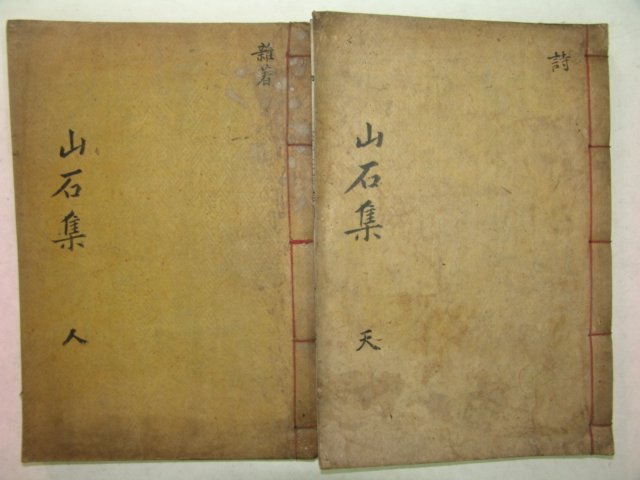 詩
山石集
天
雜著
山石集
人